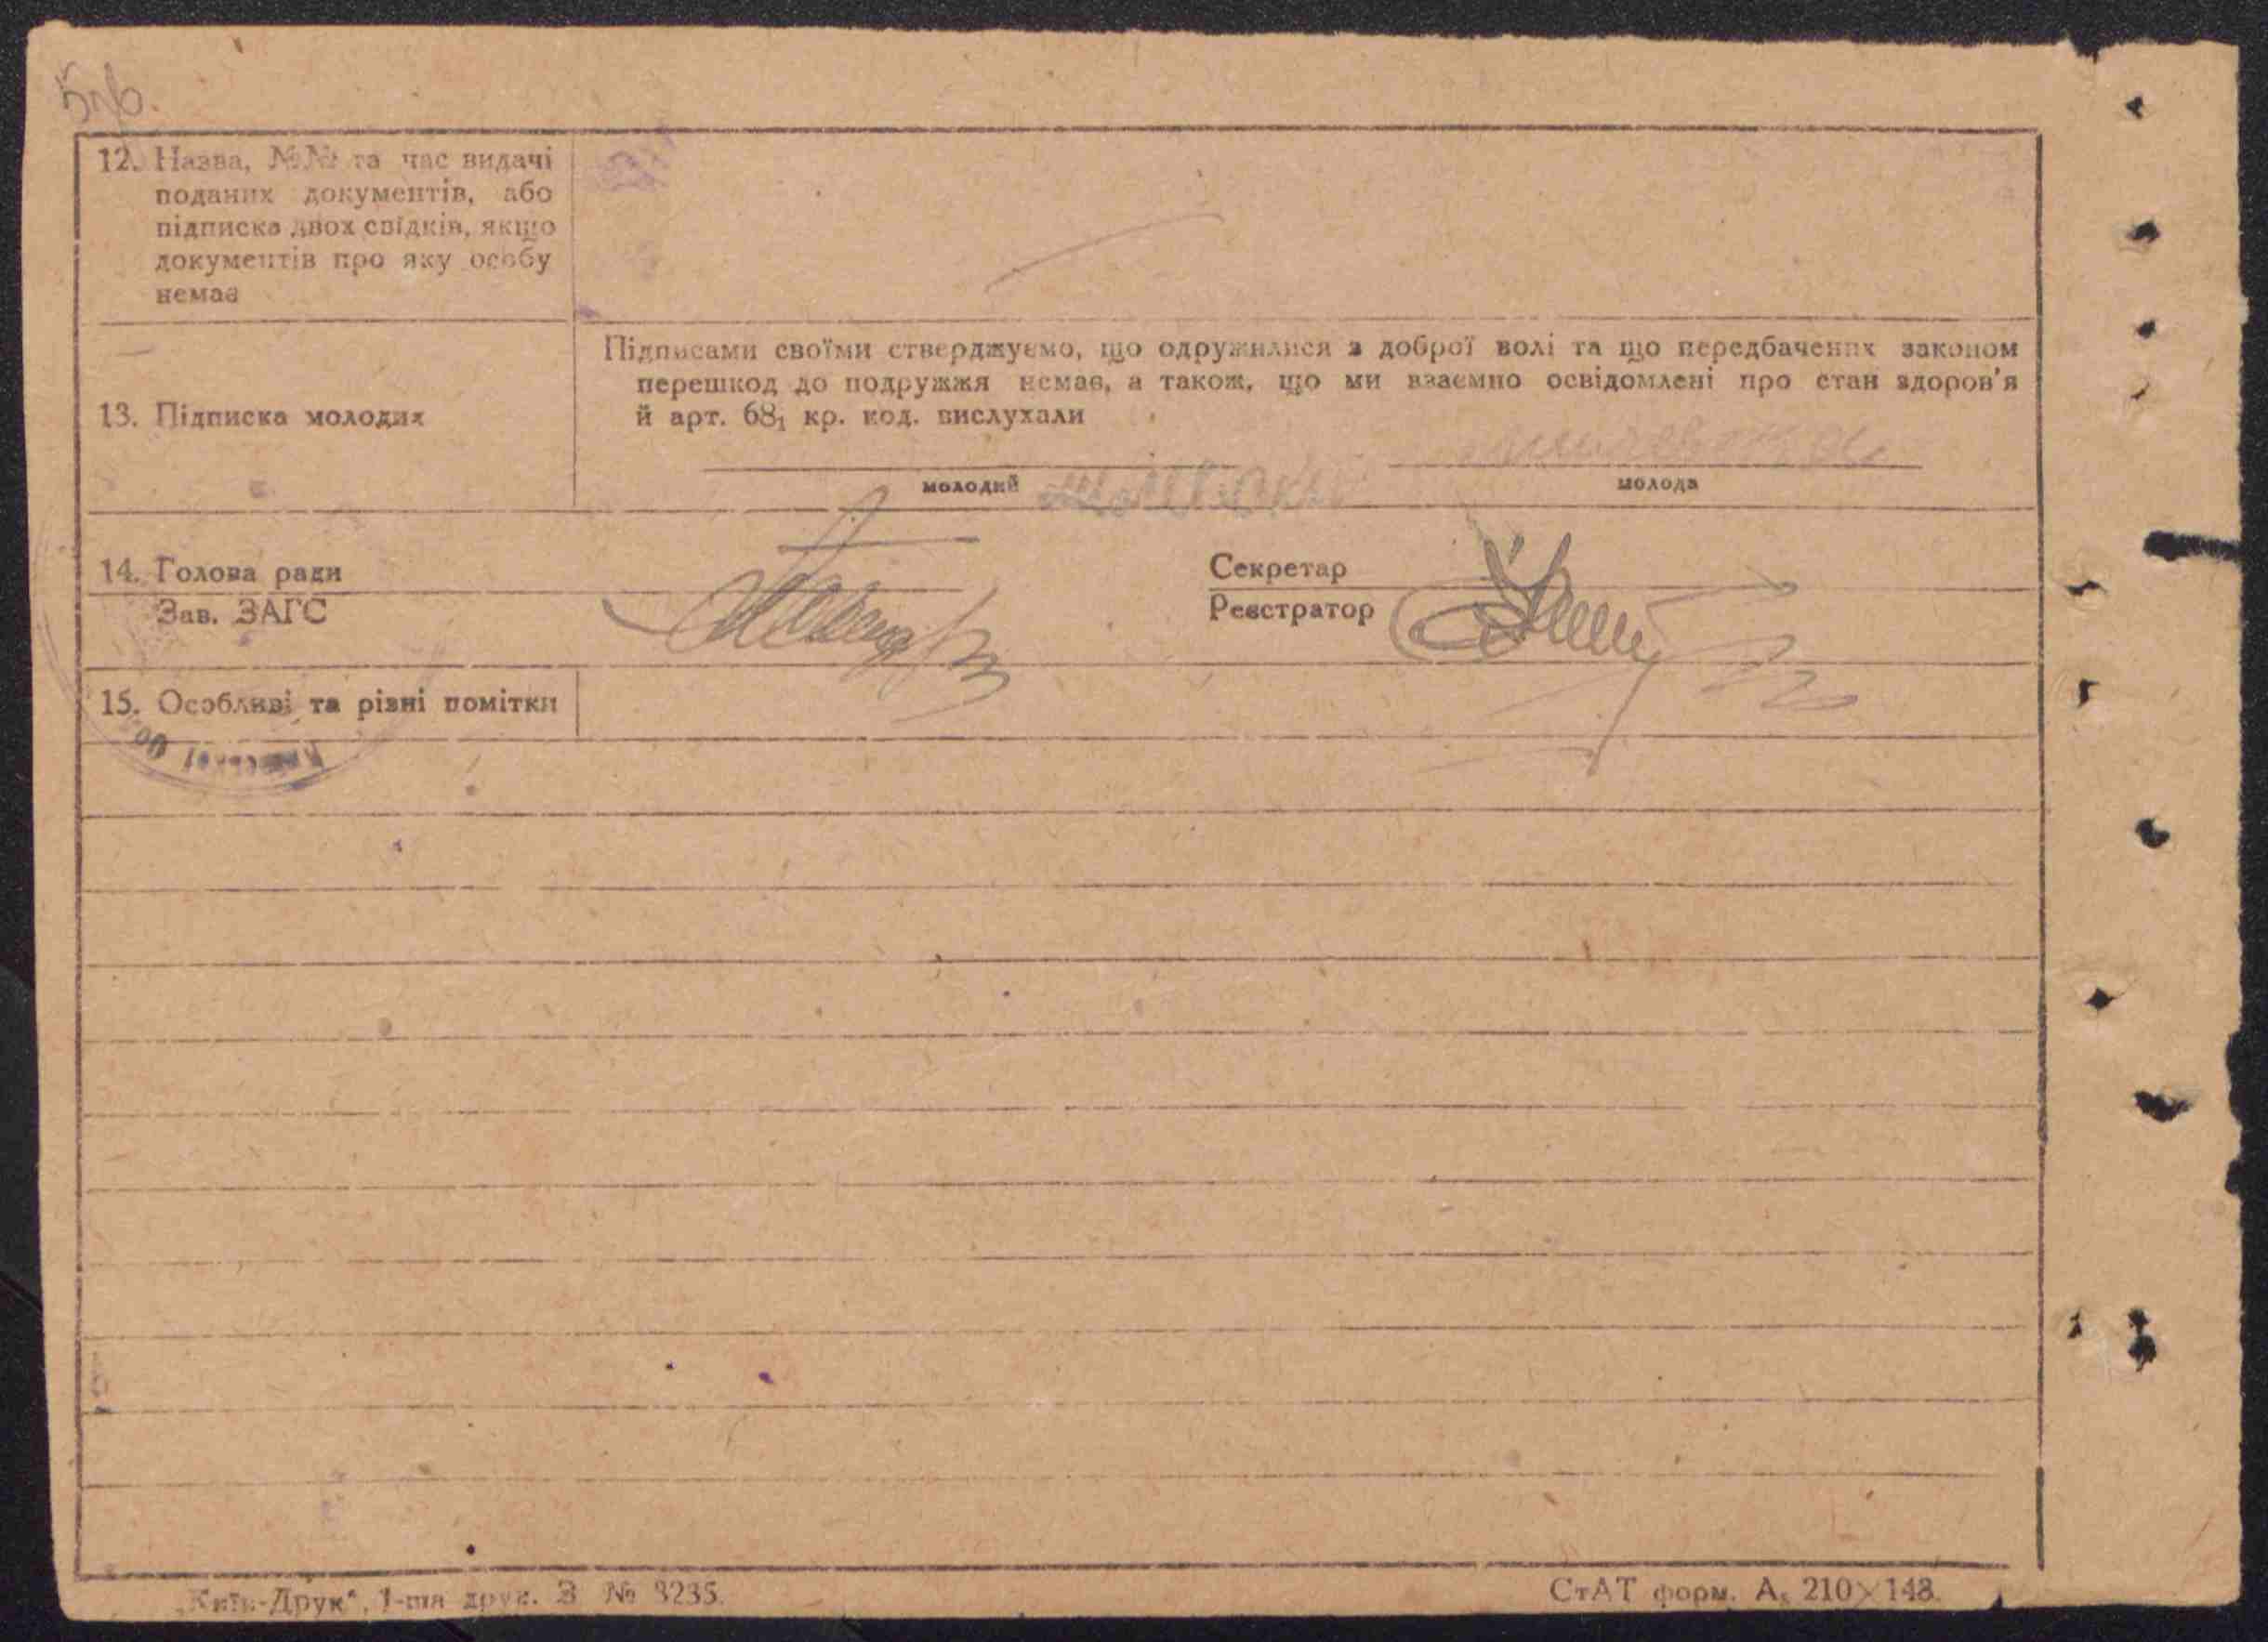 12. Назва, №№ та час видачі
поданих документів, або
підписка двох свідків, якщо
документів про яку особу
немає
Підписами своїми стверджуємо, що одружилися з доброї волі та що передбачених законом
перешкод до подружжя немає, а також, що ми взаємно освідомлені про стан здоров'я
13. Підписка молодих
й арт. 68₁ кр. код. вислухали
молодий
молода
14. Голова ради
Секретар
Зав. ЗАГС
Реєстратор
15. Особливі та різні помітки
„Київ-Друк“, 1-ша друк. З № 3235.
СтАТ форм. А₅ 210×148.